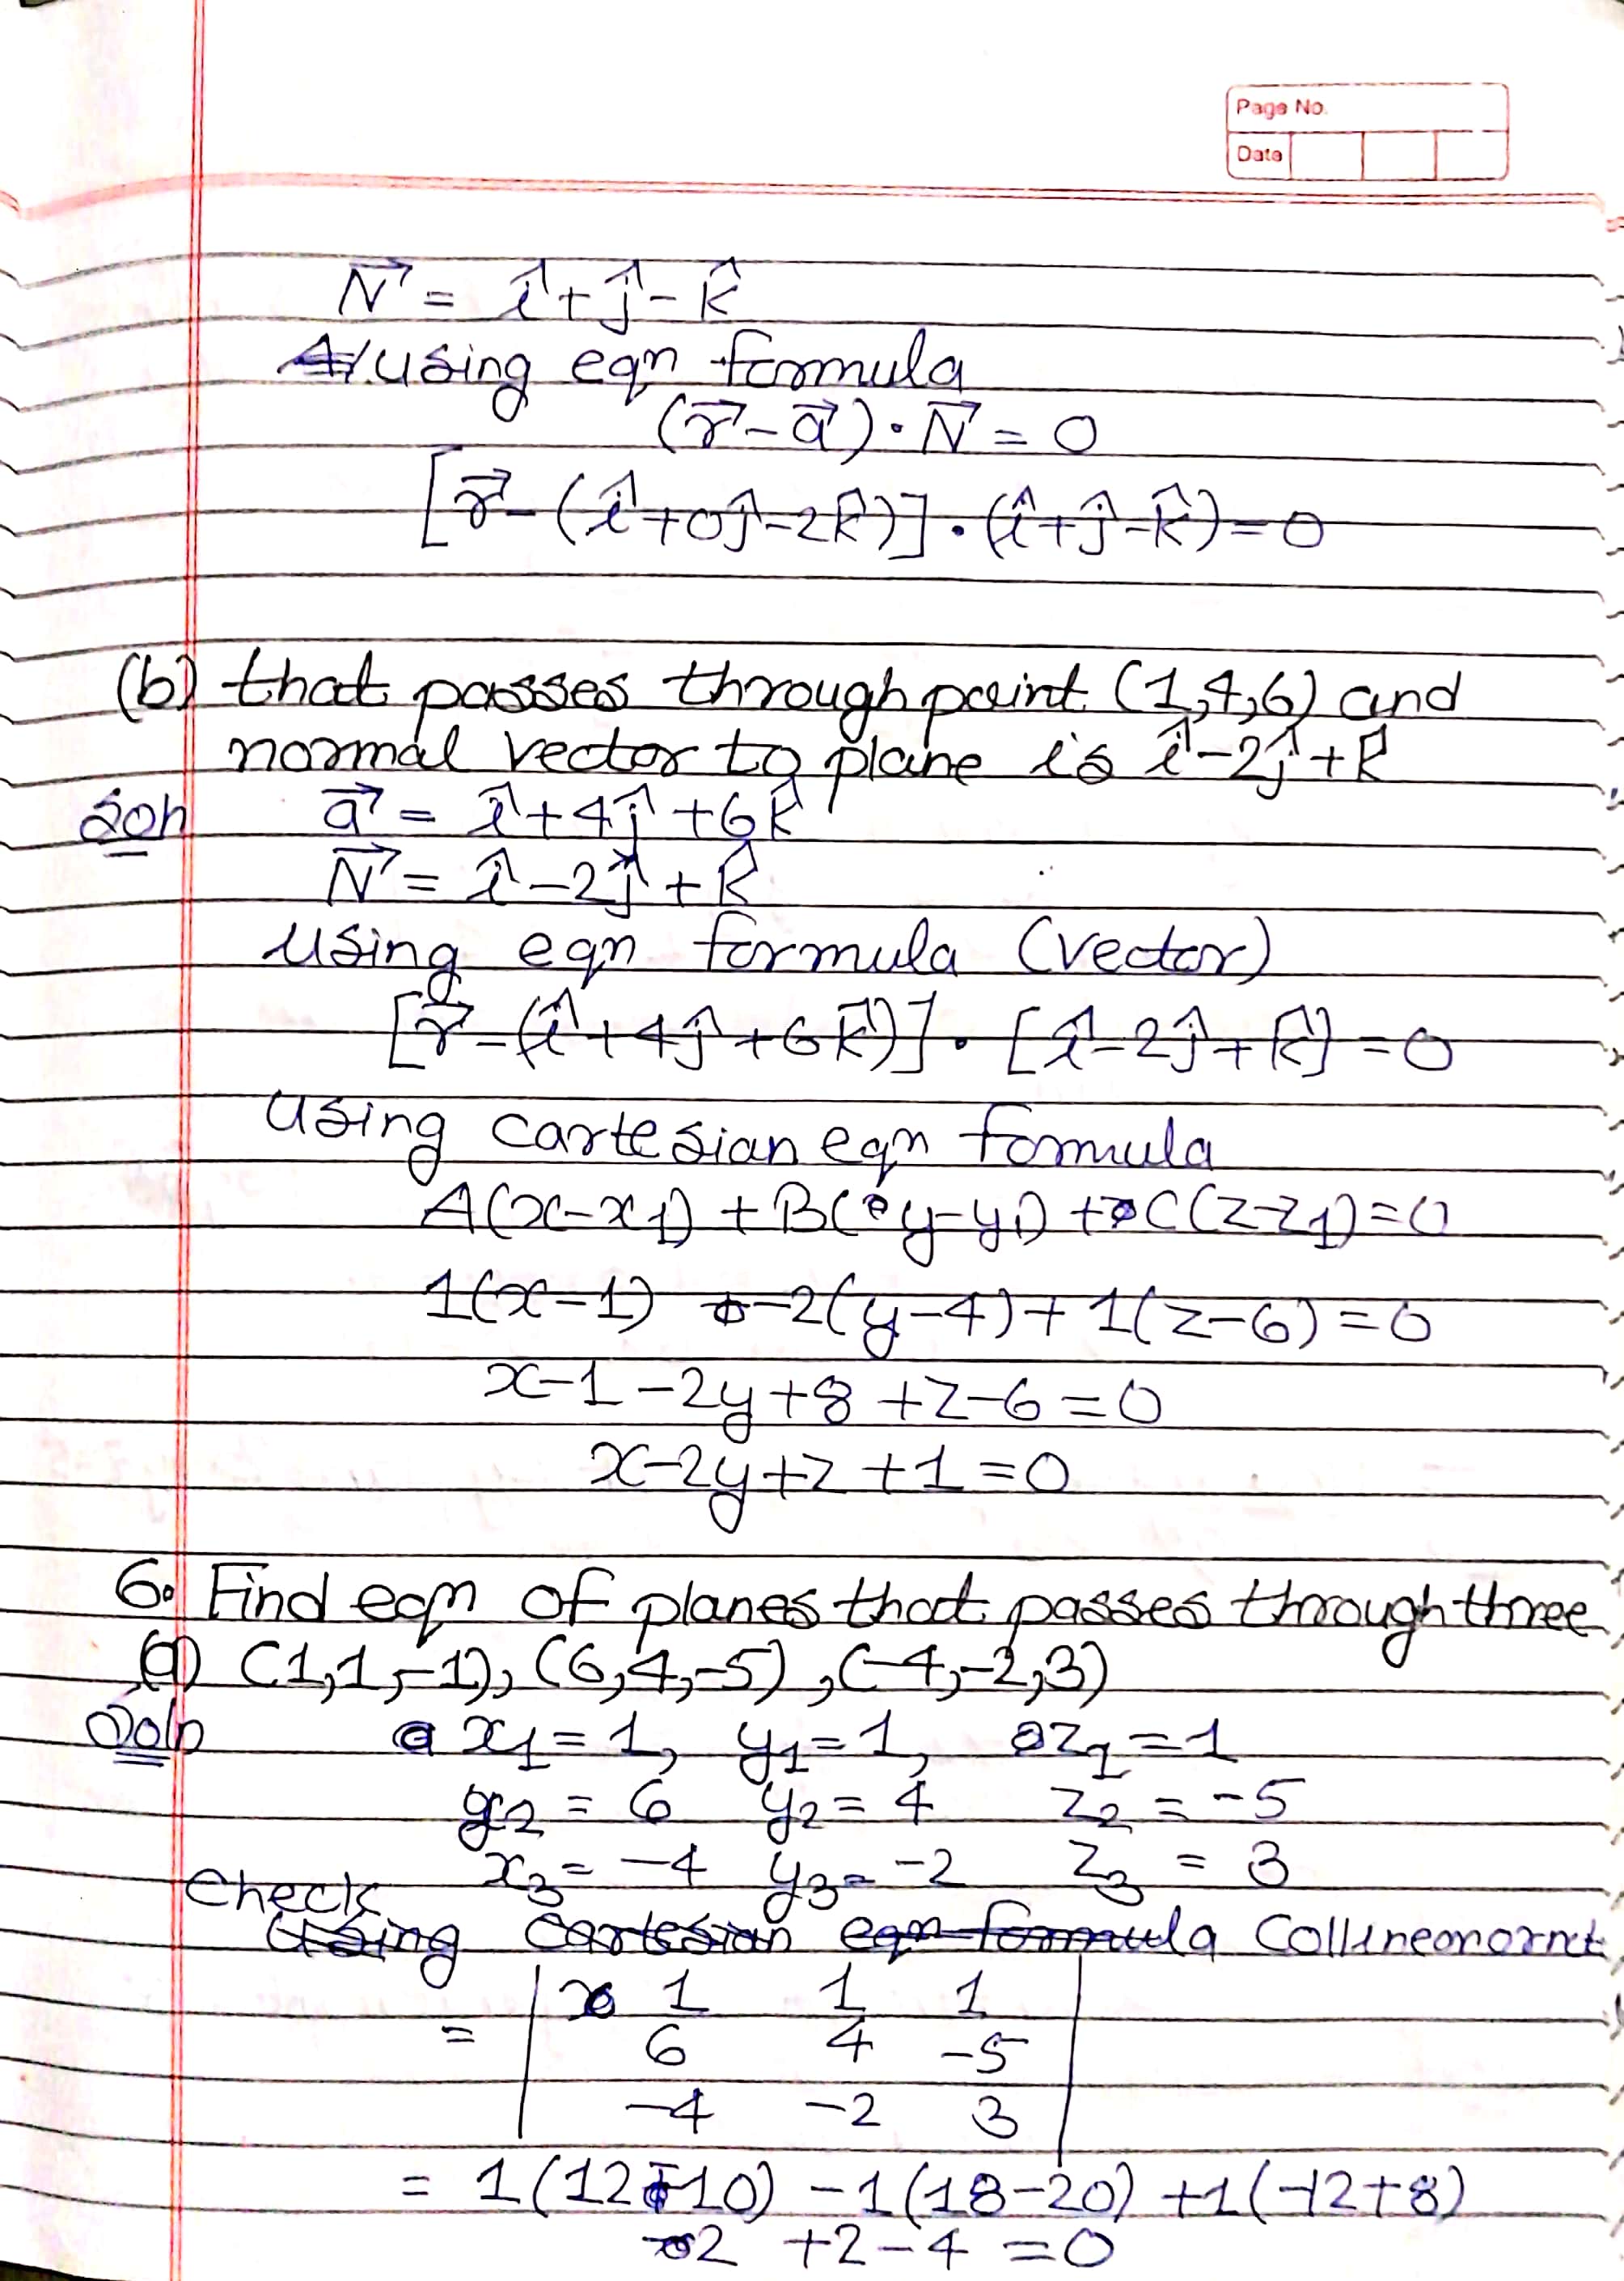 Page No.
Date
N⃗ = î + ĵ - k̂
using eqn formula
(r⃗ - a⃗) · N⃗ = 0
[r⃗ - (î + 0ĵ - 2k̂)] · (î + ĵ - k̂) = 0
(b) that passes through point (1,4,6) and
normal vector to plane is î - 2ĵ + k̂
Soln a⃗ = î + 4ĵ + 6k̂
N⃗ = î - 2ĵ + k̂
Using eqn formula (vector)
[r⃗ - (î + 4ĵ + 6k̂)] · [î - 2ĵ + k̂] = 0
using cartesian eqn formula
A(x-x1) + B(y-y1) + C(z-z1) = 0
1(x-1) -2(y-4) + 1(z-6) = 0
x-1-2y+8+z-6=0
x-2y+z+1=0
6. Find eqn of planes that passes through three
(a) (1,1,-1), (6,4,-5), (-4,-2,3)
Soln x1 = 1, y1 = 1, z1 = 1
x2 = 6 y2 = 4 z2 = -5
x3 = -4 y3 = -2 z3 = 3
Check
Using cartesian eqn formula Collinear or not
= | 1 1 1 |
6 4 -5
-4 -2 3
= 1(12-10) -1(18-20) +1(-12+8)
2 +2-4 = 0